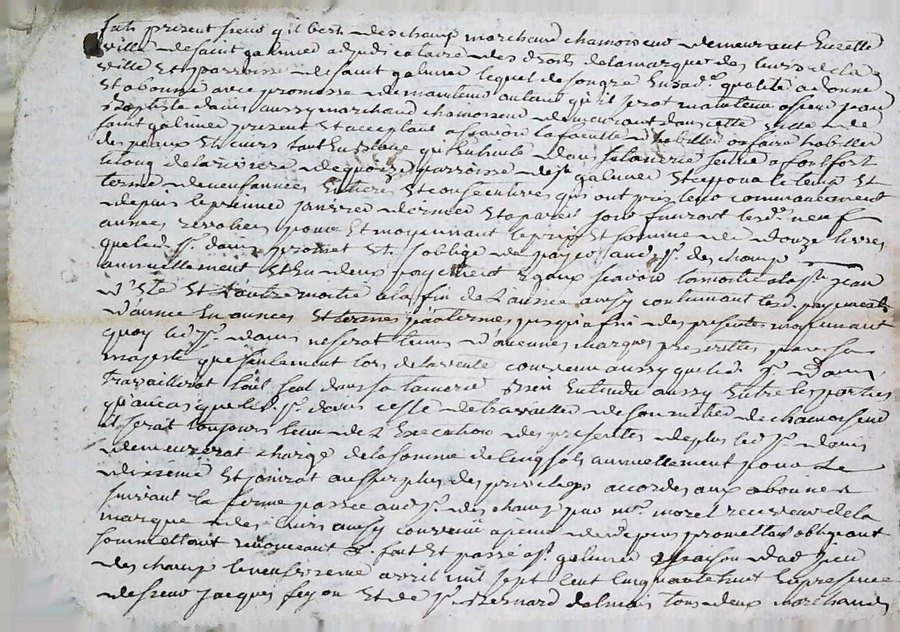 fut present sieur gilbert deschamp marchand chamoiseur demeurant en cette
ville de saint galmier adjudicataire des droits de la marque des cuirs de la
ville et parroisse de saint galmier lequel de son gre en sad. qualité a donné
et abonné avec promesse de maintenir autant qu'il serat maintenu a sieur jean
Baptiste dauis aussy marchand chamoiseur demeurant dans cette ville de
saint galmier present et acceptant a scavoir la faculté d'habiller ou faire habiller
des peaux et cuirs tout en blanc qu'en huile dans sa tanerie scituée a
le long de la riviere de parroisse de st galmier et ce pour le temps et
terme de neuf années entieres et consecutives qui ont pris leur commancement
depuis le premier janvier dernier et a pareil jour finiront lesd. neuf
années revolues pour et moyennant le prix et somme de douze livres
que led. sr. dauis promet et s'oblige de payer aud. sr. des champ
annuellement et en deux payement egaux scavoir la moitié a la st jean
d'esté et l'autre moitié a la fin de l'année ainsy continuant lesd. payements
d'année en années et termes par termes jusqu'a fin des presentes moyennant
quoy led. sr. dauis ne serat tenu d'aucunes marques prescrittes par sa
majesté que seulement lors de la vente convenu aussy que led. sr. dauis
travaillerat tout seul dans sa tanerie bien entendu aussy entre les parties
qu'au cas que led. sr. dauis cesse de travailler de son metier de chamoiseur
il serat toujours tenu de l'execution des presentes de plus led. sr. dauis
demeurerat chargé de la somme de cinq sols annuellement pour le
dixieme et jouirat au surplus des privileges accordés aux abonnés
suivant la ferme passée aud. sr. des champ par mr. morel receveur de la
marque des cuirs ainsy convenu a peine de depens promettant obligeant
soumettant renonçant &. fait et passé a st. galmier maison dud. sieur
des champ le neufvieme avril mil sept cent cinquante huit en presence
de sieur jacques feyon et de sr. Bernard dalmais tous deux marchands